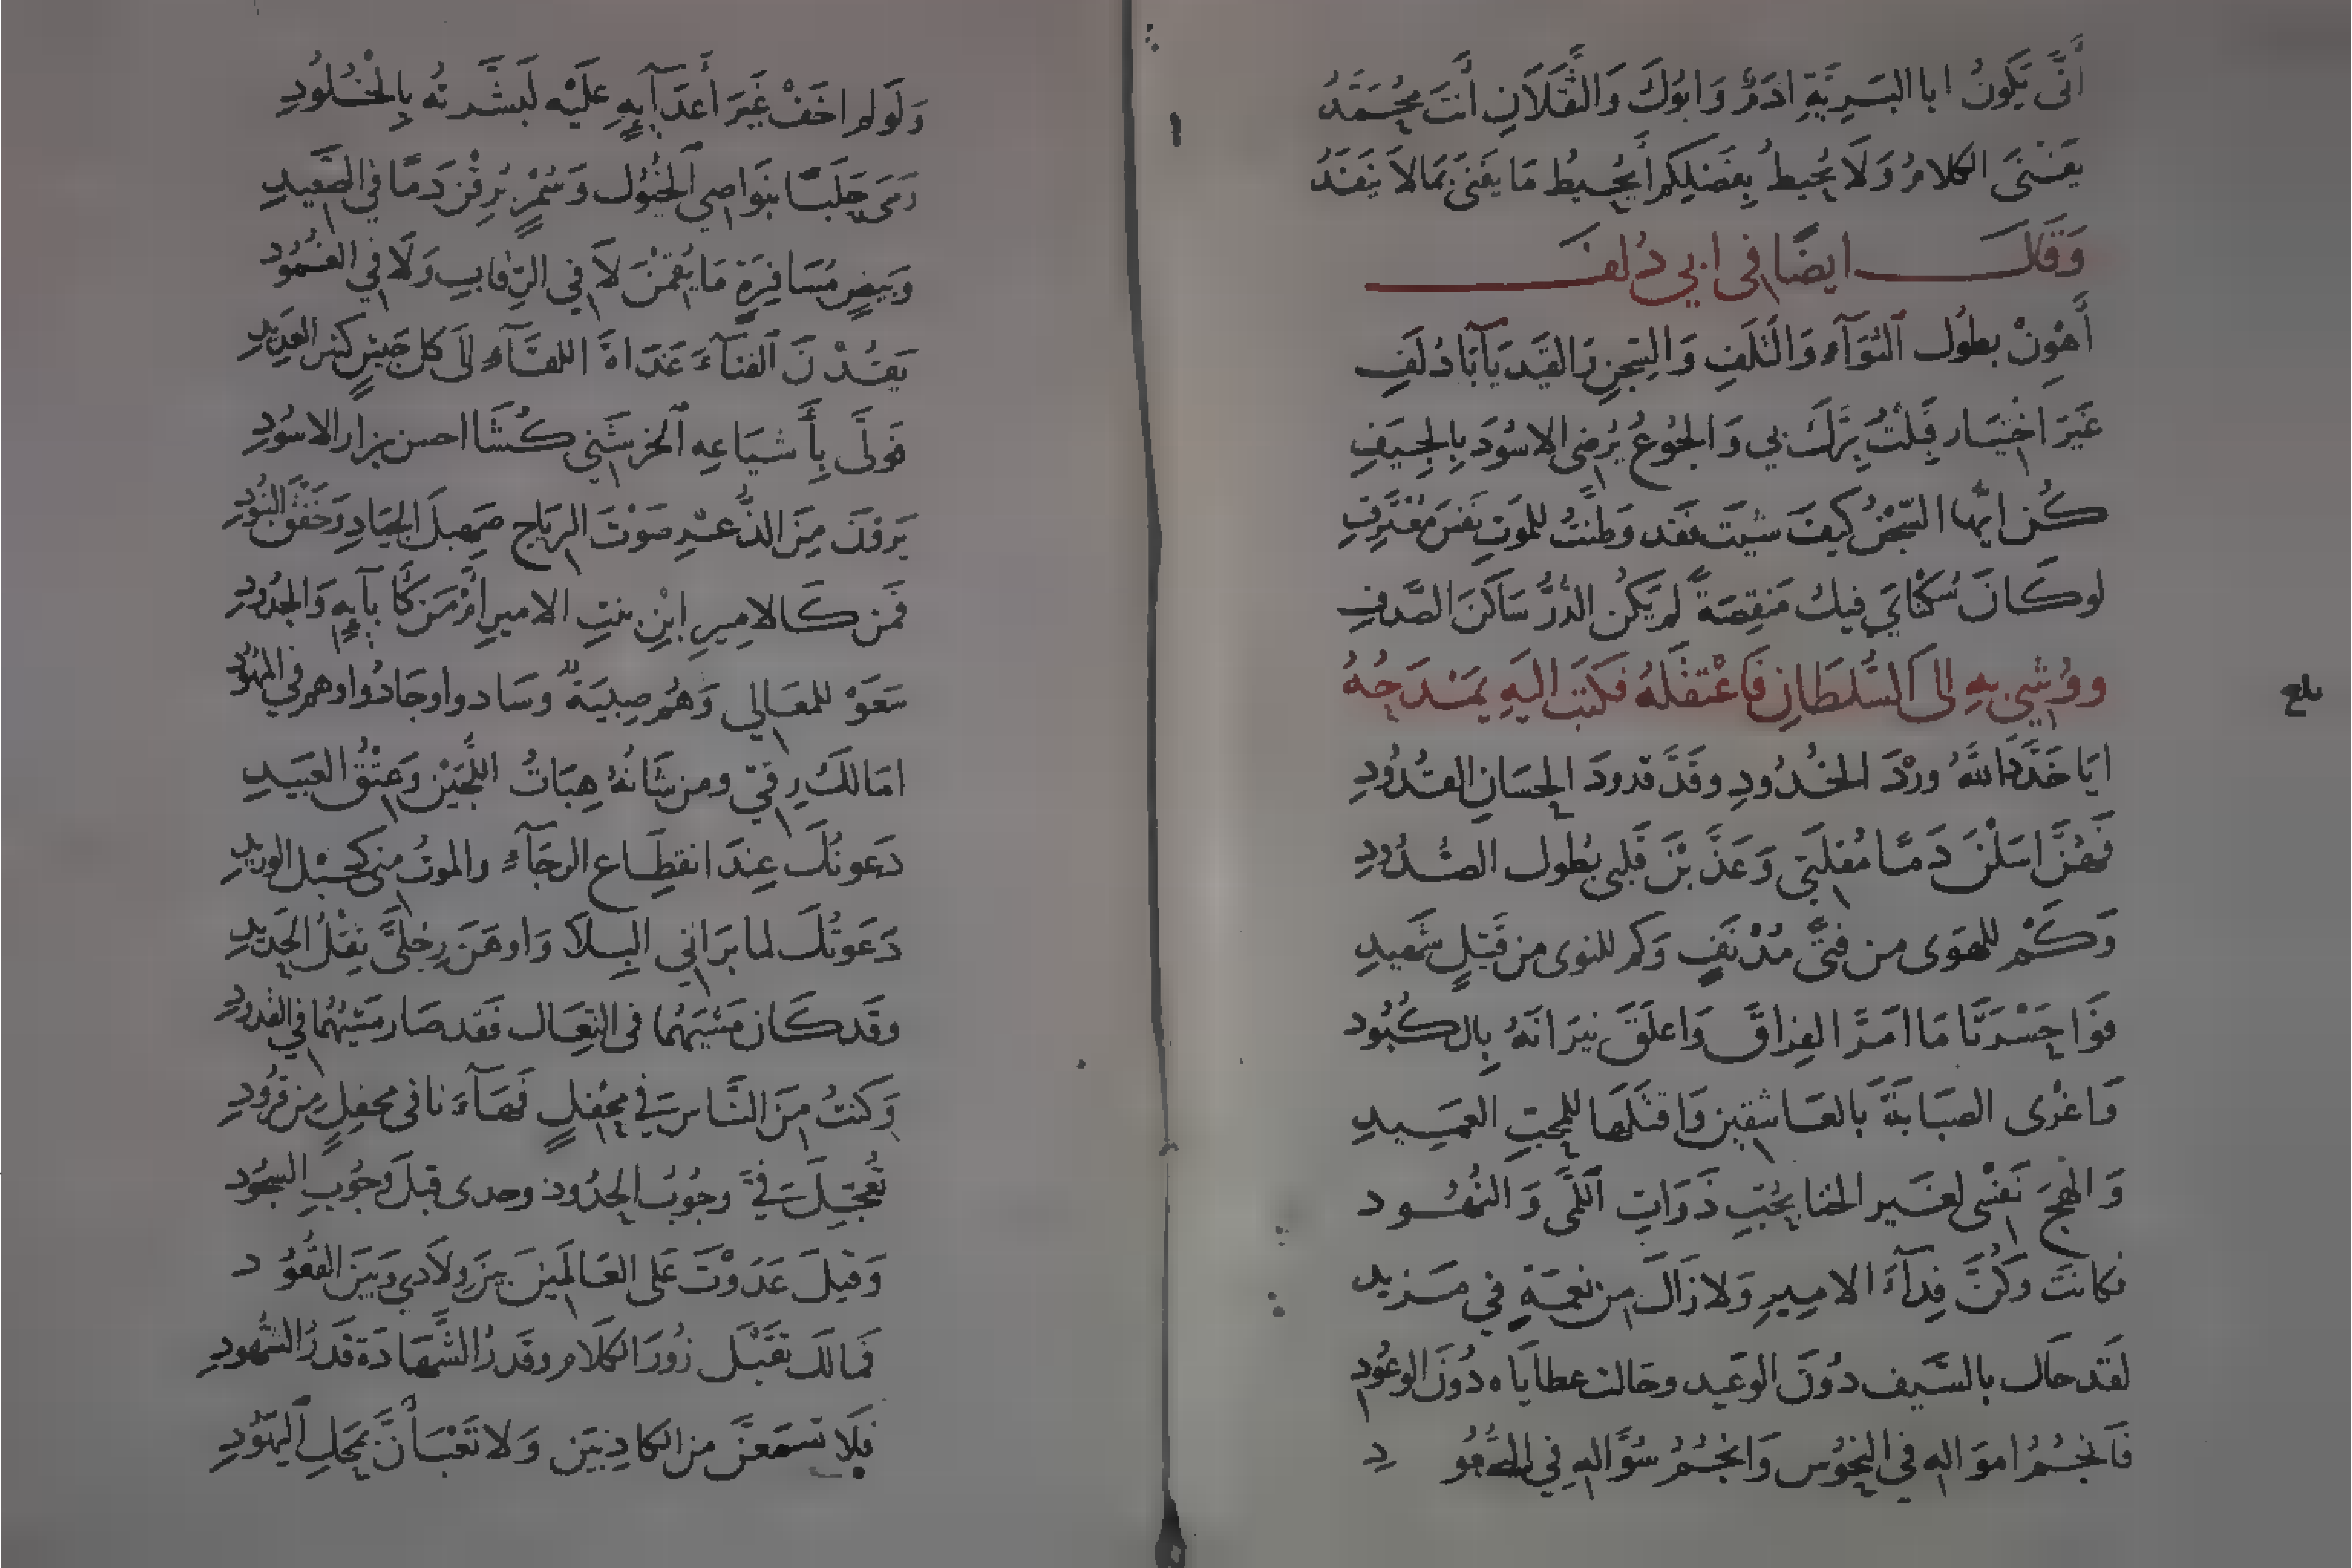 أَنَّى يَكُونُ ابا البَرِيَّةِ ادَمٌ وَابُوكَ وَالثَّقَلَانِ أَنْتَ مُحَمَّدُ
يَفْنَى الكلامُ وَلَا يُحيطُ بِفَضلِكُم أَيُحيطُ مَا يَفنَى بمَا لَا يَنفَدُ
وَقَالَ ايضًا في ابي دُلفَ
أَهْوِنْ بطُول الثَّوَآءِ وَالتَّلَفِ وَالسِّجنِ وَالقَيدِ يَآبَا دُلَفِ
غَيرَ اخْتِيَارٍ قَبِلْتُ بِرَّكَ بي وَالجُوعُ يُرضى الاسُودَ بِالجِيَفِ
كُن ايُّها السِّجْنُ كيفَ شيتَ فقَد وَطَّنتُ للموَتِ نَفسَ مُعْتَرِفِ
لوكَانَ سُكْنَايَ فيكَ مَنقِصَةً لَم يَكُن الدُّرُّ سَاكنَ الصَّدَفِ
ووُشِي بِهِ إلى السُّلطَانِ فَاعْتقَلَهُ فكَتَبَ اليَهِ يَمْدَحُهُ
ايَا خَدَّدَ اللّهُ ورْدَ الخُدُودِ وقَدَّ قدودَ الحِسَانِ القُدُودِ
فَهُنَّ اسَلْنَ دَمًا مُقلَتي وَعَذَّبْنَ قَلبي بطُول الصُّدُودِ
وَكَمْ للهَوَى من فتىً مُدْنَفٍ وَكم للنوى من قَتيلٍ شَهيدِ
فوَا حَسْرَتَا مَا امَرَّ الفِرَاقَ وَاعلَقَ نيرَانَهُ بِالكُبُودِ
وَاغْرى الصَبَابَةَ بَالعَاشقين وَاقتَلَهَا للمحِبِّ العَمِيدِ
وَالهَجَ نَفْسى لغَير الخنا بحُبِّ ذَوَاتِ اللَّمَى وَالنُّهُودِ
فكانَتْ وَكُنَّ فِدآءَ الاميرِ وَلا زَالَ من نِعمَةٍ في مَزيدِ
لقَد حَال بالسَّيف دُونَ الوَعيد وحَالت عطايَاه دُونَ الوعُودِ
فَانْجُمُ امَوَاله في النحُوس وَانجُمُ سُؤَّاله في السُّعُودِ
بلغ
وَلَو لم اخَفْ غَيرَ أَعدَآبِهِ عَلَيْه لَبشَّرتُه بِالْخُلُودِ
رَمَى حَلَبًا بنَوَاصِي الخُيُول وَسُمْرٍ يُرِقْنَ دَمًا في الصَّعيدِ
وَبيضٍ مُسَافِرَةٍ مَا يُقِمْنَ لَا في الرِّقابِ وَلَا في الغُمُودِ
يَقُدْنَ الفَنَآءَ غَدَاةَ اللقَآءِ إلى كل جَيشٍ كثير العَديدِ
فَولَّى بِأَشيَاعِهِ الخَرشَنِي كَشَا احسن بزار الاسُودِ
يَرونَ مِنَ الذُّعْرِ صَوْتَ الرياح صَهيلَ الجيَادِ وَخَفْقَ البُنُودِ
فَمَن كَالاميرِ ابْنِ بنتِ الاميرِ أَمْ مَن كَآبآبِهِ وَالجُدُودِ
سَعَوْ للمعَالي وَهُم صِبيَةٌ وسَادوا وجَادُوا وهم في المُهُودِ
امَالكَ رِقي ومن شَانُهُ هِبَاتُ اللُّجَيْن وَعِتْقُ العَبيدِ
دَعَوتُكَ عِندَ انقطِاع الرجَآءِ والموتُ منى كحَبْل الوريدِ
دَعَوتُكَ لما بَرَاني البِلاَ وَاوهَنَ رِجْلَيَّ ثِقلُ الحَديدِ
وقَد كَان مَشيُهُما في النِّعَال فقَد صَار مَشيُهُما في القُيُودِ
وَكنتُ مِنَ النَّاسِ في مَحفِلٍ فَهَآءَنا في محفِلٍ من قرُودِ
تُعَجِّلَ فيَّ وجُوبَ الحدُود وحدى قبلَ وجُوبِ السجُود
وَقيلَ عَدَوْتَ عَلى العَالَمينَ بَينَ وِلَادي وَبَينَ القُعُودِ
فَمَالَكَ تقبَل زُورَ الكَلَام وقَدرُ الشَّهَادَة قَدرُ الشُّهودِ
فلَا تسمَعَنَّ من الكاذِبينَ وَلا تَعْبَأَنَّ بمَحلِ اليَهُودِ